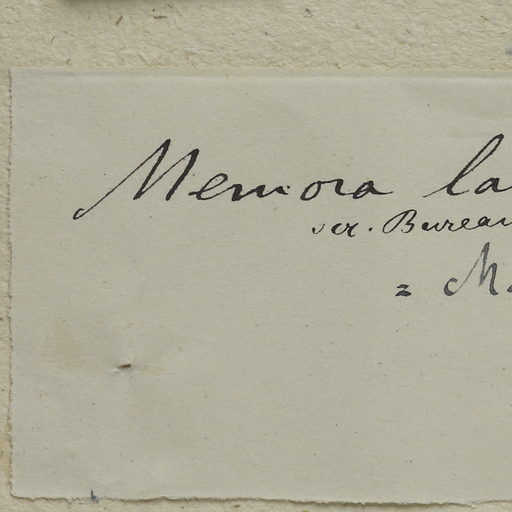 Memora la
scr. Bureau
= M.